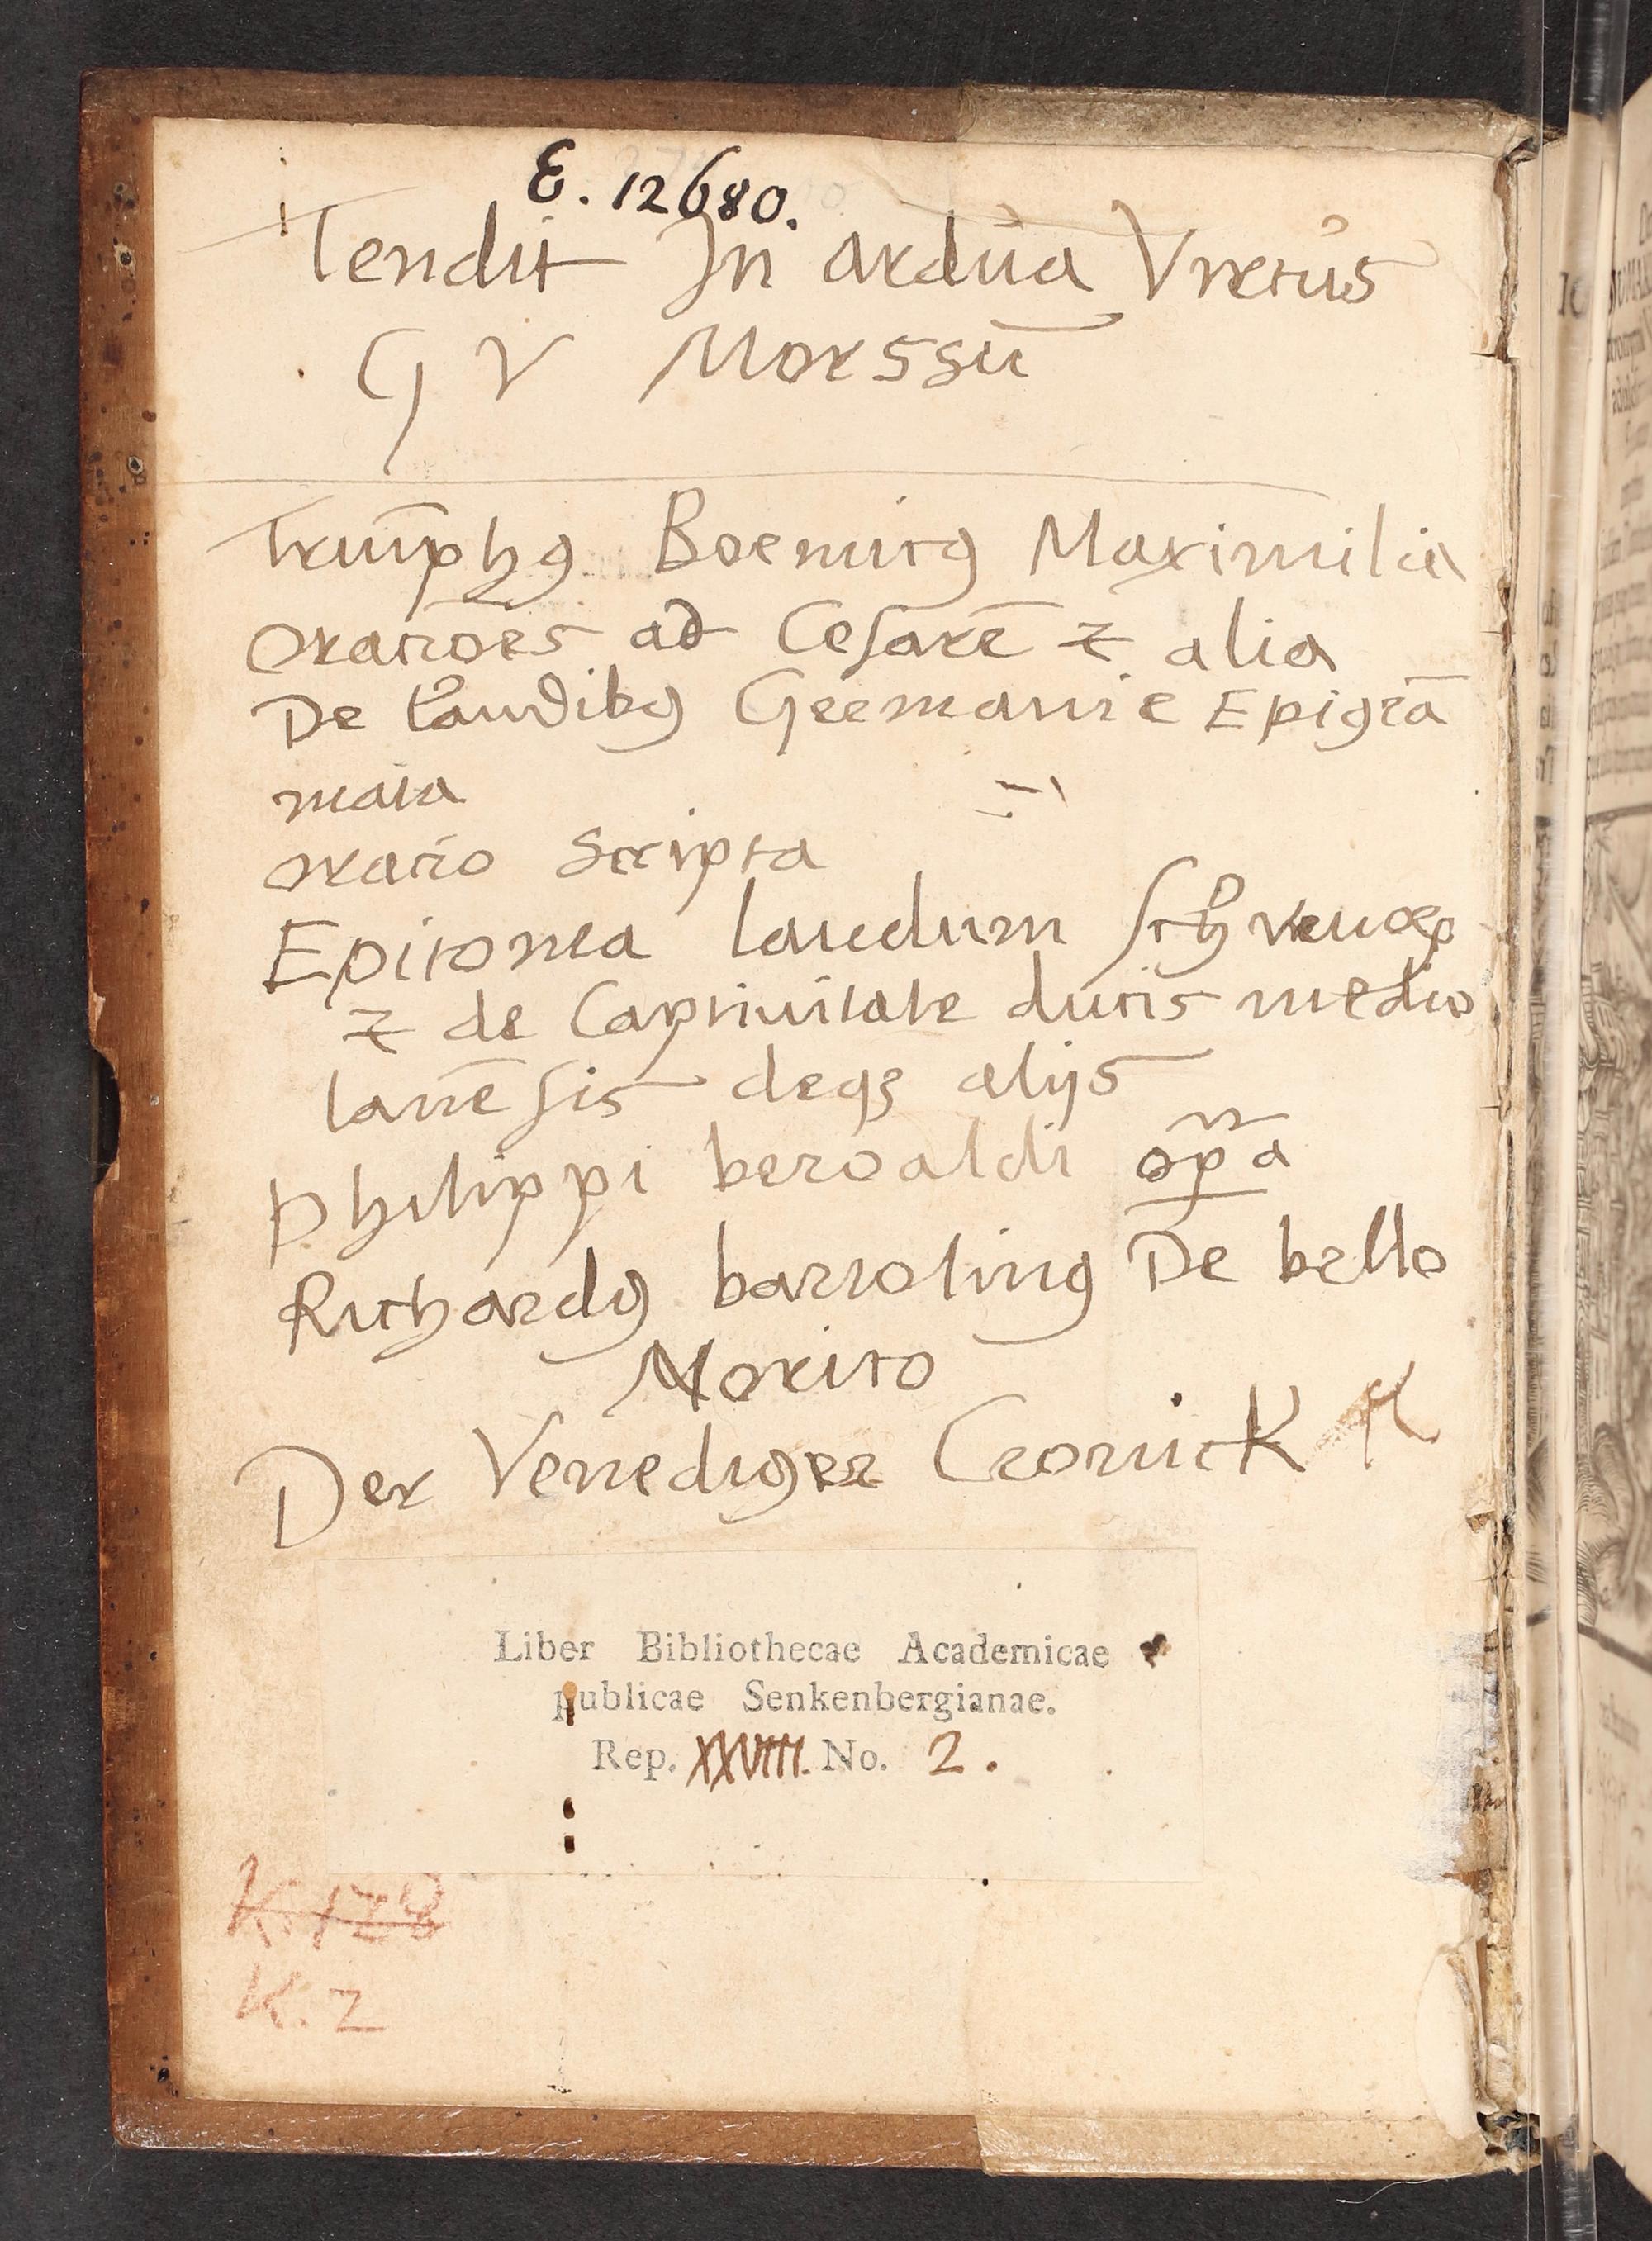 E. 12680.
Tendit In ardua Virtus
G V Morssū
Triūphꝯ Boemicꝯ Maximilia
Oracōes ad Cesarē ⁊ alia
De laudibꝯ Germanie Epigrā
mata
oracio scripta
Epitoma laudum
⁊ de Captiuitate ducis medio
lanēsis deqꝫ alijs
Philippi beroaldi opa
Richardꝯ bartolinꝯ De bello
Norico
Der Venediger Cronick
Liber Bibliothecae Academicae
publicae Senkenbergianae.
Rep. XXVIII. No. 2.
K. 128
K. 2